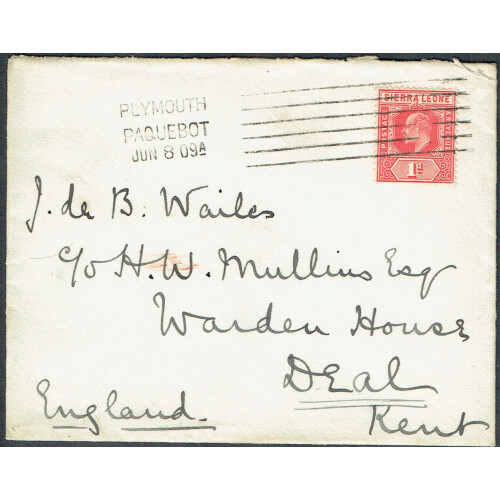 PLYMOUTH
PAQUEBOT
JUN 8 09A
SIERRA LEONE
POSTAGE
1d
J. de B. Wailes
c/o H. W. Mullins Esq
Warden House
Deal
Kent
England.